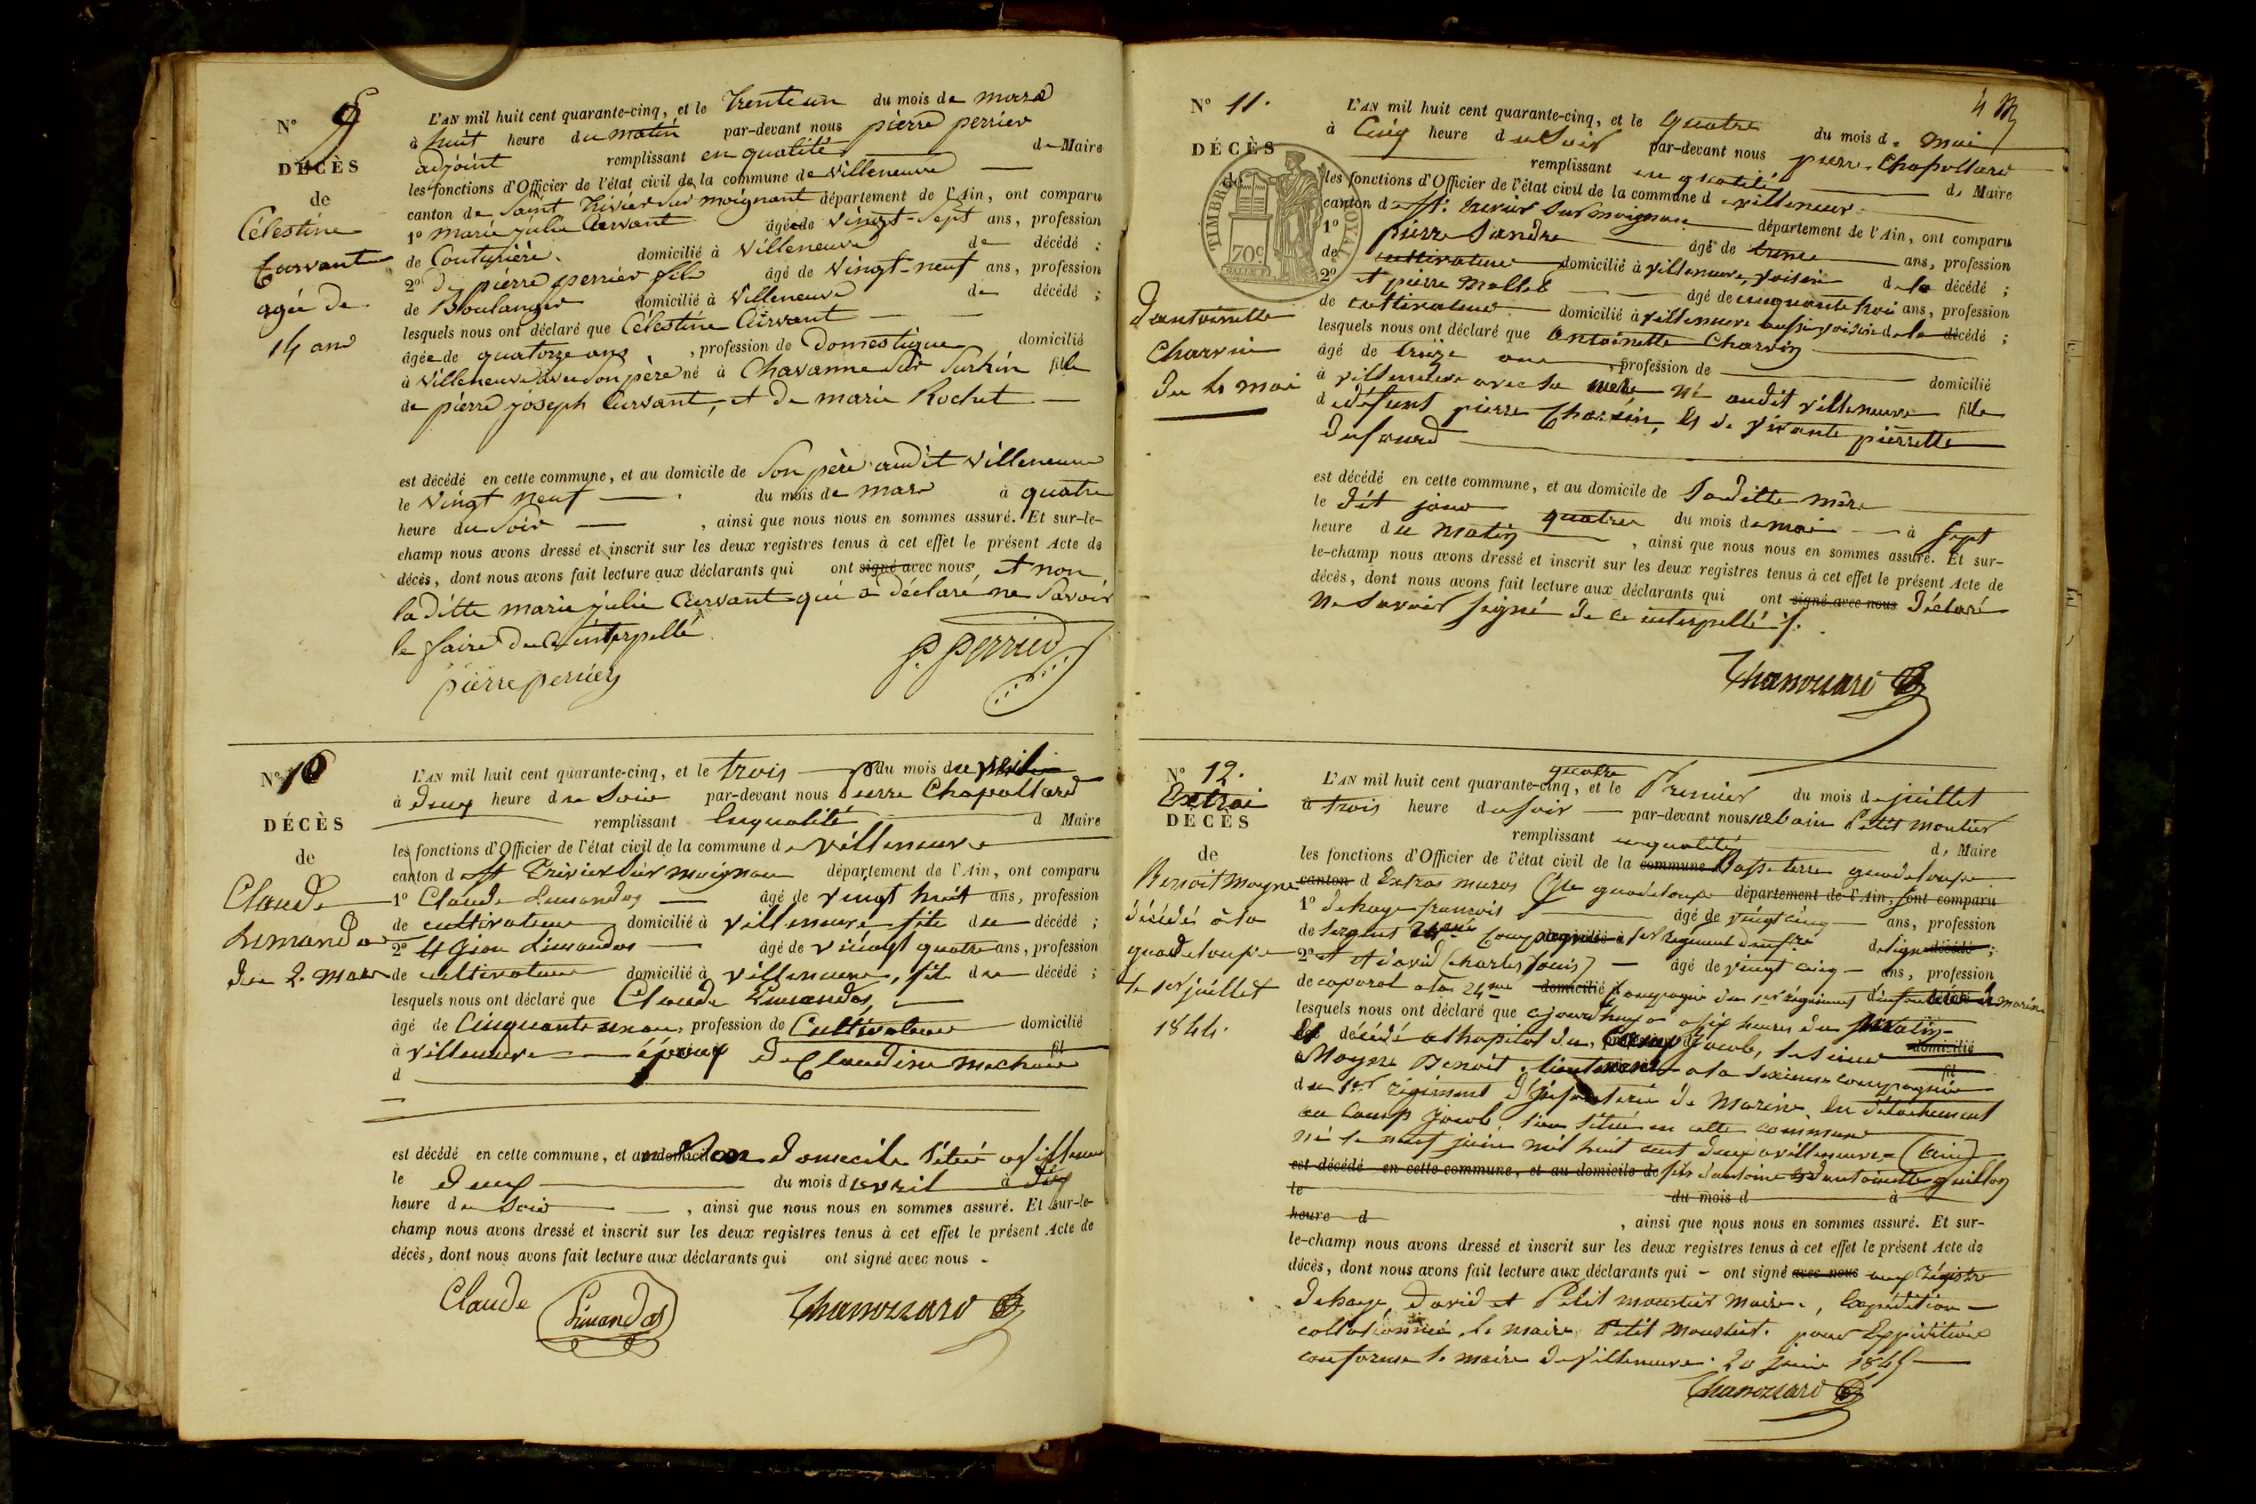 N° 9
DÉCÈS
de
Célestine
Curvant
agée de
14 ans
L'AN mil huit cent quarante-cinq, et le Trente un du mois de mars
à huit heure du matin par-devant nous pierre perrier
adjoint remplissant en qualité de Maire
les fonctions d'Officier de l'état civil de la commune de villeneuve
canton de Saint Trivier Sur moignant département de l'Ain, ont comparu
1° marie julie Curvant âgée de vingt-sept ans, profession
de Couturière domicilié à villeneuve de décédé ;
2° De pierre perrier fils âgé de vingt-neuf ans, profession
de Boulanger domicilié à villeneuve de décédé ;
lesquels nous ont déclaré que Célestine Curvant
âgée de quatorze ans, profession de Domestique domicilié
à villeneuve avec son père né à Chavanne Sur Surhin fille
de pierre joseph Curvant, et De marie Rochet
est décédé en cette commune, et au domicile de Son père audit villeneuve
le vingt neuf du mois de mars à quatre
heure du Soir , ainsi que nous nous en sommes assuré. Et sur-le-
champ nous avons dressé et inscrit sur les deux registres tenus à cet effet le présent Acte de
décès, dont nous avons fait lecture aux déclarants qui ont signé avec nous et non
la Ditte marie julie Curvant qui a déclaré ne Savoir
le faire de ce interpellé
pierre perrier P. Perrier
N° 10
DÉCÈS
de
Claude
Limandas
L'AN mil huit cent quarante-cinq, et le trois du mois d avril
à Deux heure du Soir par-devant nous Pierre Chapottard
remplissant En qualité d Maire
les fonctions d'Officier de l'état civil de la commune de villeneuve
canton de St Trivier Sur moignan département de l'Ain, ont comparu
1° Claude Limandas âgé de vingt huit ans, profession
de cultivateur domicilié à villeneuve fils du décédé ;
2° Et Jean Limandas âgé de vingt quatre ans, profession
de cultivateur domicilié à villeneuve, fils du décédé ;
lesquels nous ont déclaré que Claude Limandas
âgé de Cinquante un ans, profession de Cultivateur domicilié
à villeneuve époux De Claudine fil
d
est décédé en cette commune, et au domicile son Domicile Situé a villeneuve
le Deux du mois d avril à dix
heure du Soir , ainsi que nous nous en sommes assuré. Et sur-le-
champ nous avons dressé et inscrit sur les deux registres tenus à cet effet le présent Acte de
décès, dont nous avons fait lecture aux déclarants qui ont signé avec nous .
Claude Limandas
4
N° 11.
DÉCÈS
de
TIMBRE ROYAL
70c
D'antoinette
Charvin
Du 4 mai
L'AN mil huit cent quarante-cinq, et le quatre du mois de mai
à Cinq heure du Soir par-devant nous pierre Chapottard
remplissant en qualité de Maire
les fonctions d'Officier de l'état civil de la commune de villeneuve
canton de St. Trivier Sur moignan département de l'Ain, ont comparu
1° pierre Sandre âgé de trente ans, profession
de cultivateur domicilié à villeneuve, voisin de la décédé ;
2° et pierre Mollet âgé de cinquante trois ans, profession
de cultivateur domicilié à villeneuve aussi voisin de la décédé ;
lesquels nous ont déclaré que Antoinette Charvin
âgé de treize ans, profession de domicilié
à villeneuve avec sa mère né audit villeneuve fille
de défunt pierre Charvin, Et de vivante pierrette
Dufourd
est décédé en cette commune, et au domicile de Saditte mère
le dit jour quatre du mois de mai à sept
heure du matin , ainsi que nous nous en sommes assuré. Et sur-
le-champ nous avons dressé et inscrit sur les deux registres tenus à cet effet le présent Acte de
décès, dont nous avons fait lecture aux déclarants qui ont signé avec nous Déclaré
Ne Savoir Signé De ce interpellé
N° 12.
Extrai
DÉCÈS
de
Benoit Moyne
décédé à la
guadeloupe
le 1er juillet
1844.
L'AN mil huit cent quarante-cinq quatre, et le Premier du mois de juillet
à trois heure du soir par-devant nous Petit Moutier
remplissant en qualité de Maire
les fonctions d'Officier de l'état civil de la commune Basse terre guadeloupe
canton d Extras muros Ile guadeloupe département de l'Ain, ont comparu
1° Dehaye francois âgé de vingt cinq ans, profession
de Sergent 24me Compagnie domicilié à 1er régiment d décédé ;
2° et David (Charles Louis) âgé de vingt cinq ans, profession
de caporal a la 24me domicilié Compagnie du 1er régiment d'infanterie de marine
lesquels nous ont déclaré que ajourd'huy a six heures du matin
Est décédé a lhopital du Camp Jacob, le Sieur domicilié
Moyne Benoit, lieutenant a la Sixieme compagnie fil
du 1er régiment D'infanterie De Marine, En détachement
au Camp Jacob, lieu Situé en cette commune
né le neuf juin mil huit cent deux a villeneuve (Ain)
est décédé en cette commune, et au domicile de fils d'antoine et d'antoinette guillon
le du mois d à
heure d , ainsi que nous nous en sommes assuré. Et sur-
le-champ nous avons dressé et inscrit sur les deux registres tenus à cet effet le présent Acte de
décès, dont nous avons fait lecture aux déclarants qui - ont signé avec nous aux Régistre
Dehaye, David et Petit moutier Maire, Expédition
collationnée le maire Petit Moutier. pour Expédition
conforme le maire De Villeneuve. 20 juin 1845